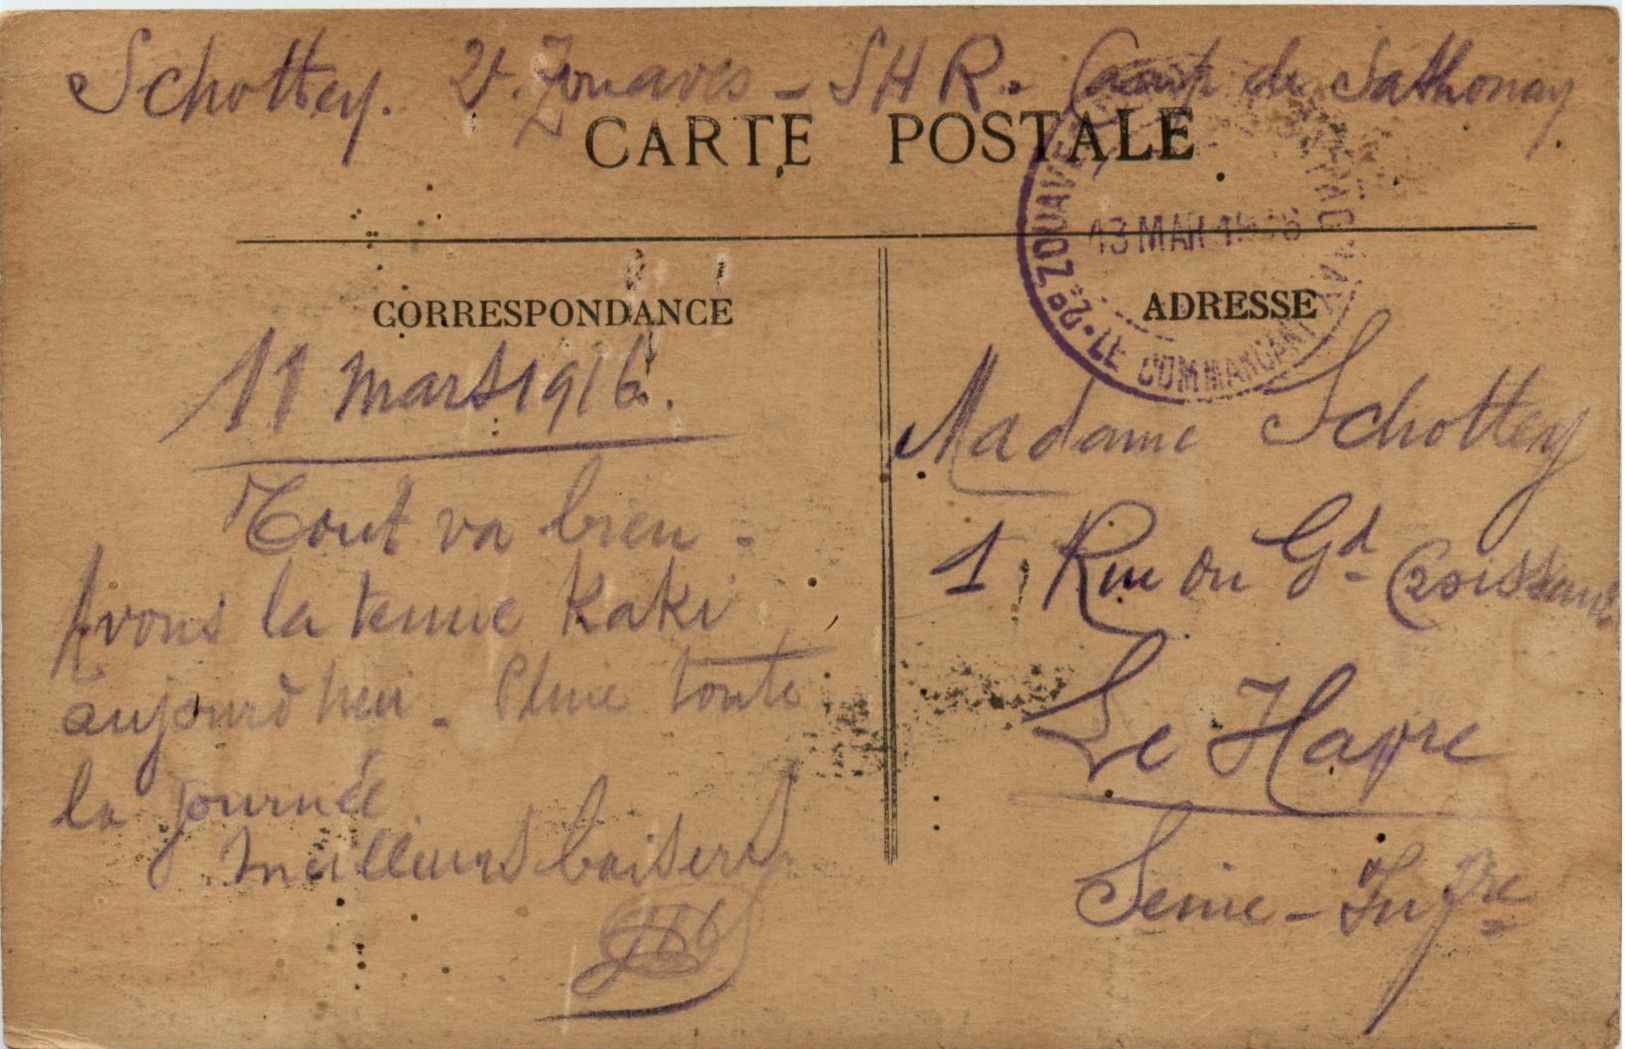 Schottey. 2e. Zouaves - SHR. Camp de Sathonay
CARTE POSTALE
13 MAR
2e Rt ZOUAVES
LE COMMANDANT
CORRESPONDANCE
11 mars 1916.
Tout va bien -
Avons la tenue Kaki
aujourd'hui - Pluie toute
la journée
Meilleurs baisers
ADRESSE
Madame Schottey
1, Rue du Gd Croissant
Le Havre
Seine-Infre